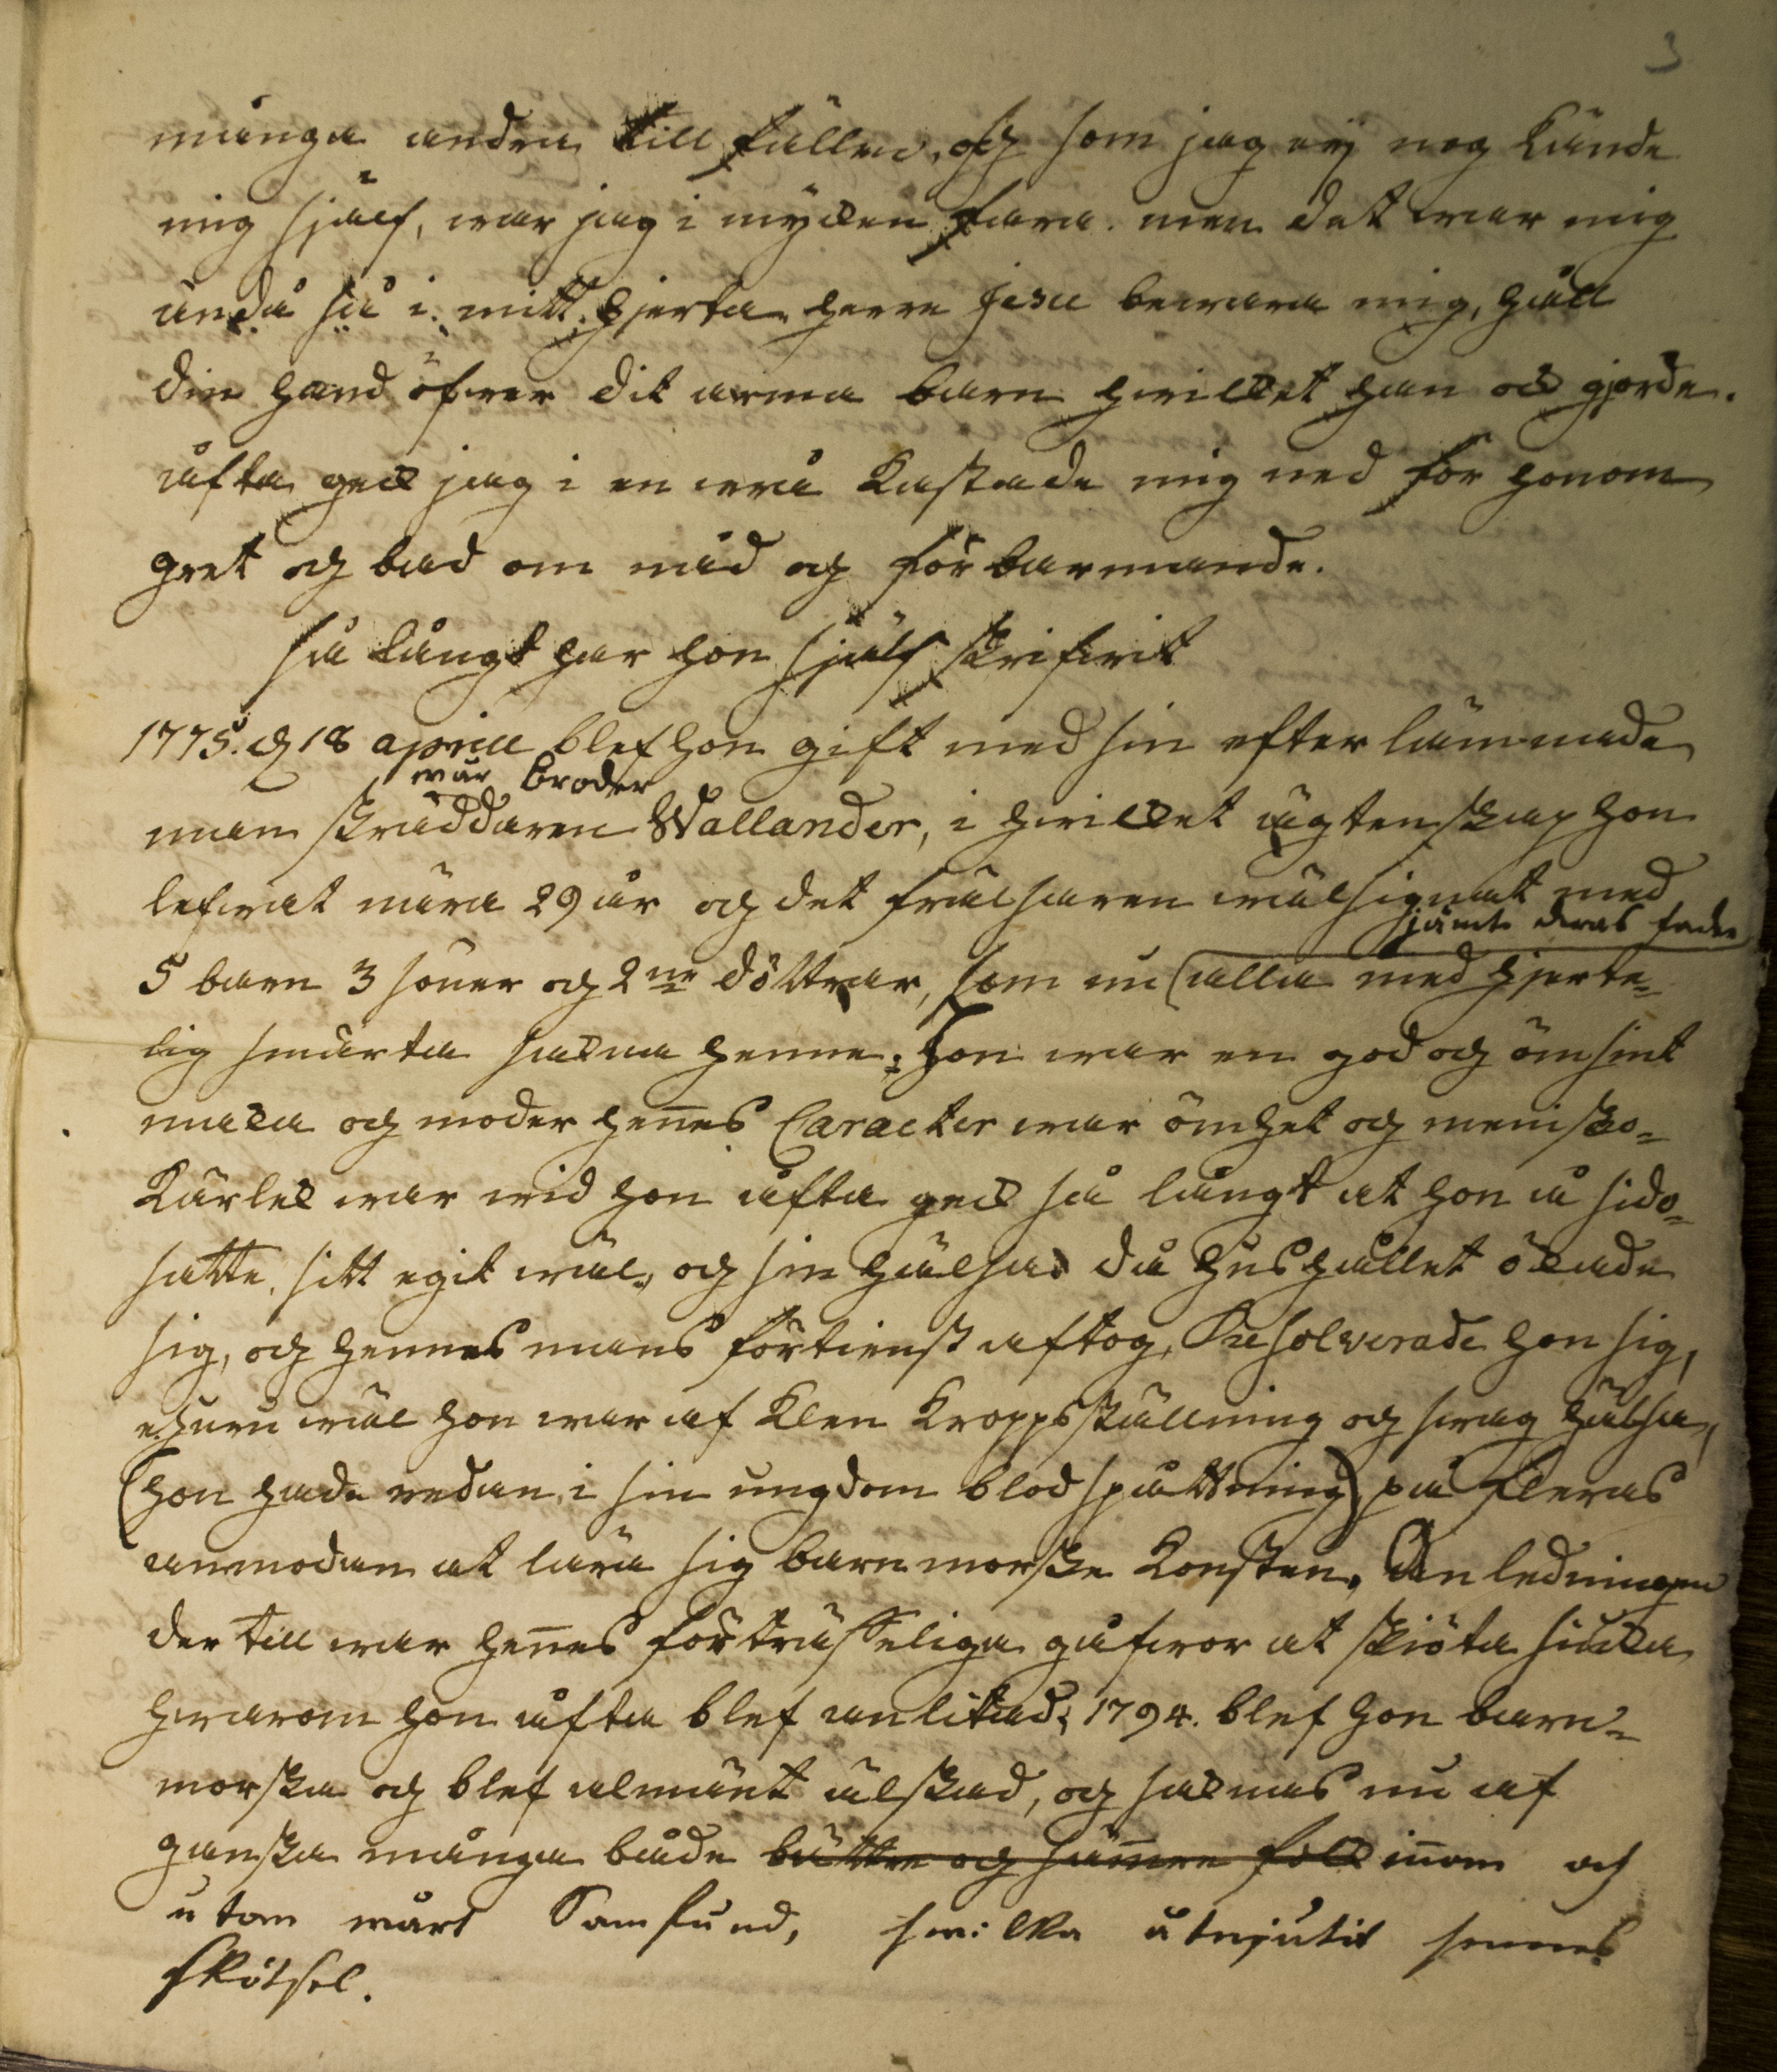 3
många andra till fällen, och som jag ej nog kände
mig sjelf, war jag i mycken fara. men det war mig
ändå så i mitt hjerta herre Jesu bewara mig, håll
din hand öfwer dit arma barn hwilcket han ock gjorde.
åfta geck jag i en wrå kastade mig ned för honom
gret och bad om nåd och förbarmande.
så långt har hon sjelf skrifwit
1775. d 18 aprill blef hon gift med sin efter lämnade
wår broder
man skräddaren Wallander, i hwilcket ägtenskap hon
lefwat nära 29 år och det frälsaren wälsignat med
jämte deras fader
5 barn 3 söner och 2ne döttrar, som nu alla med hjerte-
lig smärta sakna henne. Hon war en god och ömsint
maka och moder hennes Caracter war ömhet och menisko-
kärlek war wid hon åfta geck så långt at hon å sido-
satte sitt egit wäl, och sin hälsa då hushållet ökade
sig, och hennes mans förtienst aftog, Resolverade hon sig,
ehuru wäl hon war af klen kroppställning och swag hälsa,
(hon hade redan i sin ungdom blod spåttning) på fleras
anmodan at lära sig barnmorske konsten. Anledningen
der till war hennes förträffeliga gåfwor at skiöta siuka
hwarom hon åfta blef anlitad; 1794. blef hon barn-
morska och blef almänt älskad, och saknas nu af
ganska många både bättre och sämre folck innom och
utom wårt Samfund, hwilka åtnjutit hennes
skötsel.